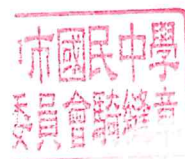 市國民中學
委員會騎縫章